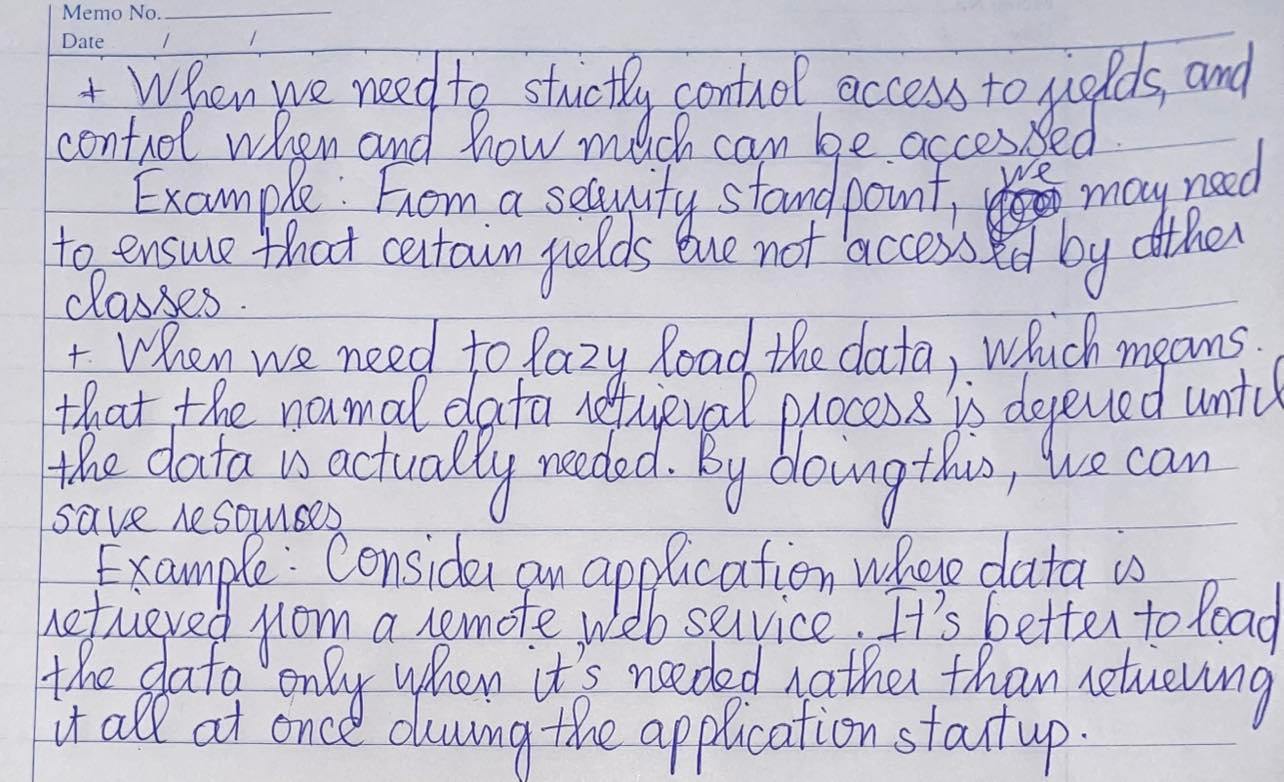 Memo No.
Date / /
+ When we need to strictly control access to fields, and
control when and how much can be accessed.
Example: From a security standpoint, we may need
to ensure that certain fields are not accessed by other
classes.
+ When we need to lazy load the data, which means
that the normal data retrieval process is deferred until
the data is actually needed. By doing this, we can
save resources
Example: Consider an application where data is
retrieved from a remote web service. It's better to load
the data only when it's needed rather than retrieving
it all at once during the application startup.